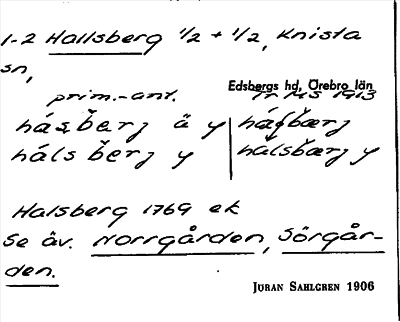 1-2 Hallsberg 1/2 + 1/2, Knista
sn,
Edsbergs hd, Örebro län
prim.-ant. fr MS 1913
háșb̌erȷ ä y háșb̌ærȷ
háls b̌erȷ y hálsb̌ærȷ y
Halsberg 1769 ek
Se äv. Norrgården, Sörgår-
den.
JÖRAN SAHLGREN 1906